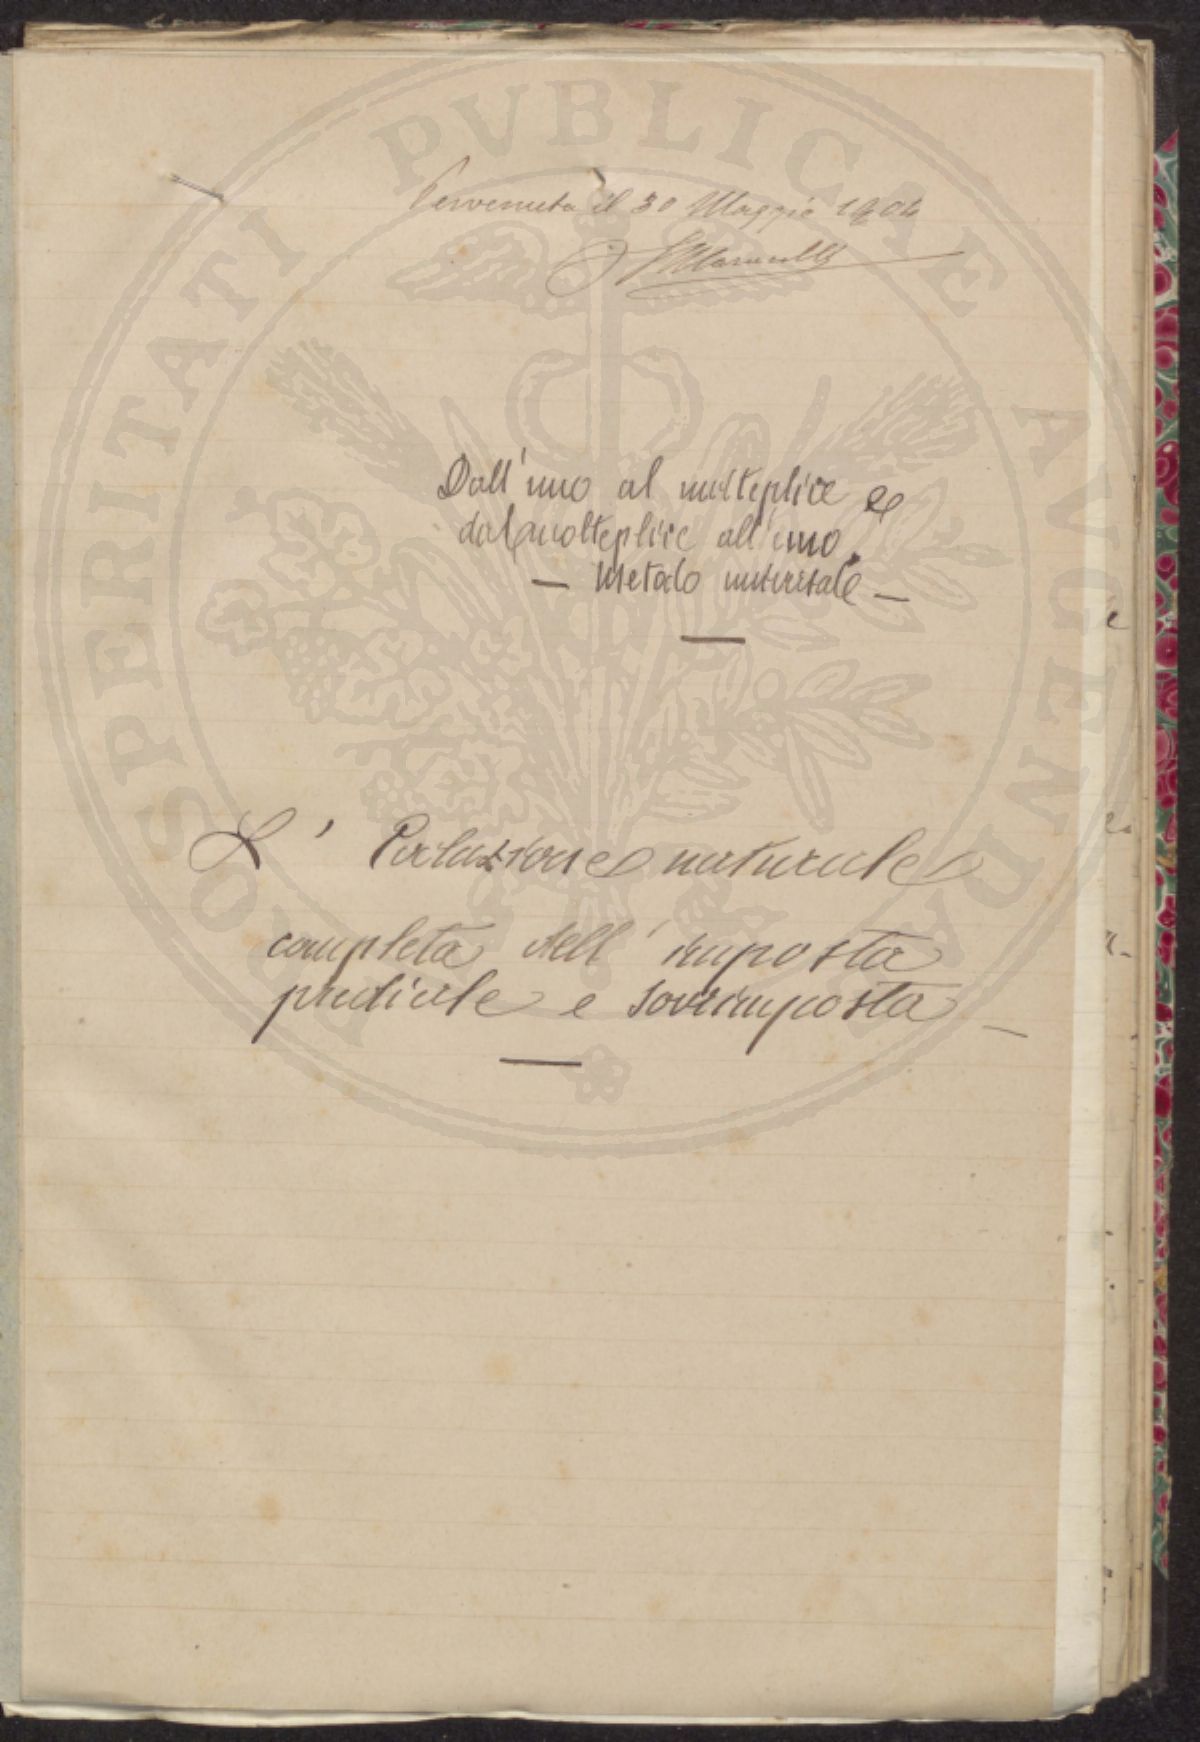 Pervenuta il 30 Maggio 1904
Dall'uno al molteplice e
dal molteplice all'uno.
— Metodo universale —
L' Evoluzione naturale
completa dell' imposta
prediale e sovrimposta —
PROSPERITATI PVBLICAE AVGENDAE